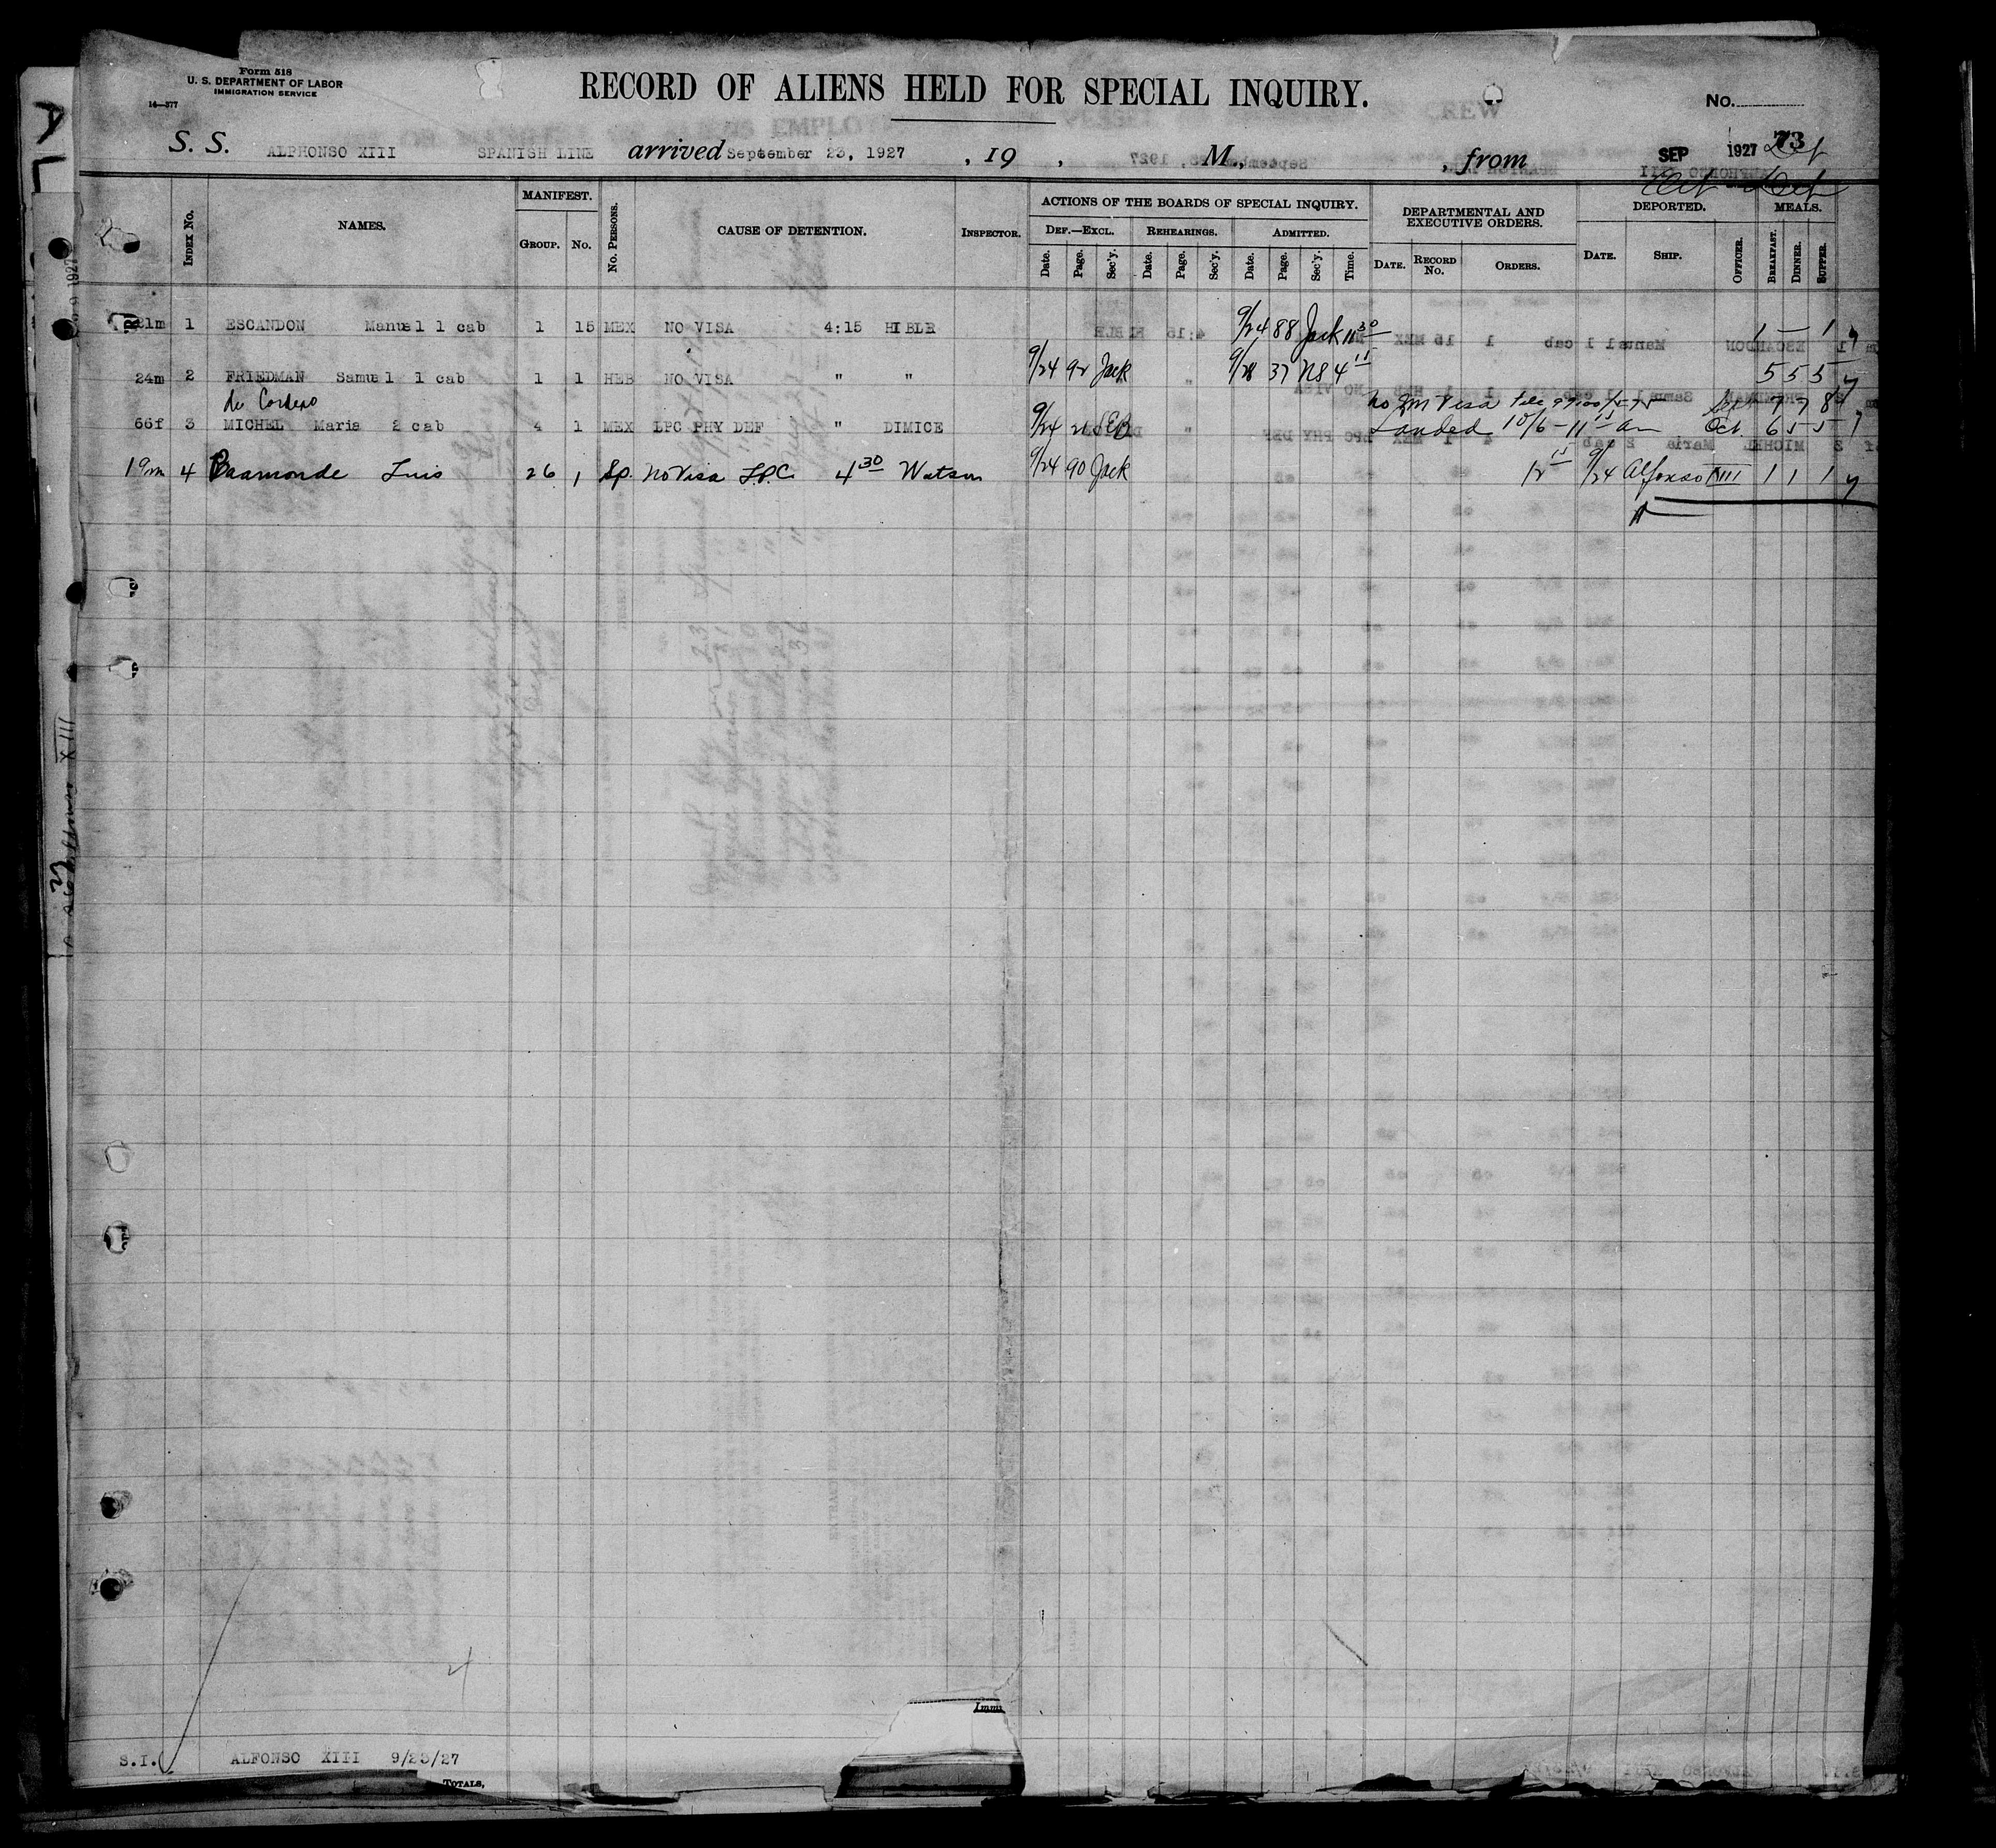 Form 518
U. S. DEPARTMENT OF LABOR
IMMIGRATION SERVICE
14—377
RECORD OF ALIENS HELD FOR SPECIAL INQUIRY.
No.
S. S. ALPHONSO XIII SPANISH LINE arrived September 23, 1927 , 19 , M., , from SEP 1927 73
Index No. NAMES. MANIFEST. Group. No. No. Persons. CAUSE OF DETENTION. Inspector.
ACTIONS OF THE BOARDS OF SPECIAL INQUIRY. Def.—Excl. Date. Page. Sec'y. Rehearings. Date. Page. Sec'y. Admitted. Date. Page. Sec'y. Time.
DEPARTMENTAL AND EXECUTIVE ORDERS. Date. Record No. Orders. DEPORTED. Date. Ship. Officer. MEALS. Breakfast. Dinner. Supper.
21m 1 ESCANDON Manuel 1 cab 1 15 MEX NO VISA 4:15 HIBLR 9/24 88 Jack 11 30 1 — 1
24m 2 FRIEDMAN Samuel 1 cab 1 1 HEB NO VISA " " 9/24 92 Jack 9/28 37 NS 4 11 5 5 5
de Cordero
No Im Visa Sept 7 7 8
66f 3 MICHEL Maria 2 cab 4 1 MEX LPC PHY DEF " DIMICE 9/24 21 SEB Landed 10/6 – 11 15 am Oct. 6 5 5
19m 4 Baamonde Luis 26 1 Sp. No Visa LPC 4 30 Watson 9/24 90 Jack 12 15 9/24 Alfonso XIII 1 1 1
4
Immi
S.I. ALFONSO XIII 9/23/27
Totals,